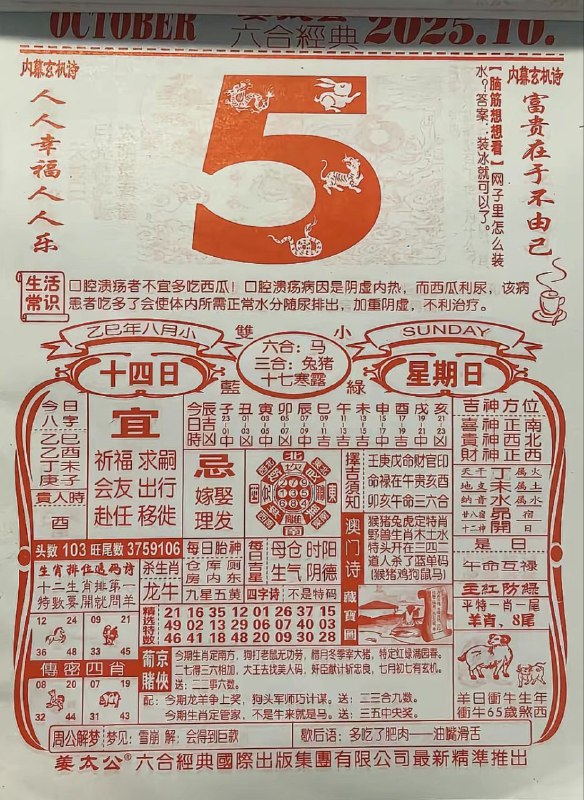 OCTOBER 姜太公 2025.10.
六合經典
内幕玄机诗
人人幸福人人乐
5
【脑筋想想看】网子里怎么装
水？答案：装冰就可以了。
内幕玄机诗
富贵在于不由己
生活常识
口腔溃疡者不宜多吃西瓜！口腔溃疡病因是阴虚内热，而西瓜利尿，该病
患者吃多了会使体内所需正常水分随尿排出，加重阴虚，不利治疗。
乙巳年八月小
十四日
雙 小
六合：马
三合：兔猪
十七寒露
藍 綠
SUNDAY
星期日
今日八字
乙巳
乙酉
丁未
庚子
貴人時
酉
宜
祈福 求嗣
会友 出行
赴任 移徙
今日
辰時
子丑寅卯辰巳午未申酉戌亥
23 1 3 5 7 9 11 13 15 17 19 21
忌
嫁娶
理发
北
南
擇吉須知
壬庚戊命财官印
命禄在午贵亥酉
卯亥午命三六合
吉神方位
喜神正南
貴神正西
財神正北
天干 丁 属火
地支 未 属土
納音 水 属水
廿八宿 昴 宿
十二神 開 日
是日
午命互禄
头数 103 旺尾数 3759106
生肖排位追码诗
十二生肖排第一
特数要開就問羊
杀生肖
龙牛
每日胎神
仓库 房内
厕 东
九星五黄
每日吉星
母仓 时阳
生气 阴德
四字诗 不是特码
澳门诗
猴猪兔虎定特肖
野兽生肖木土水
特头开在三四二
道人杀了蓝单码
(猴猪鸡狗鼠马)
藏寶圖
主红防綠
平特一肖一尾
羊肖，8尾
12 24 09 21
36 48 33 45
傳密四肖
08 20 07 19
32 44 31 43
精选特数
21 16 35 12 01 26 37 15
49 02 13 29 06 07 03 27
46 41 18 48 20 09 30 28
葡京賭俠
今期生肖定南方，狗打老鼠无功劳，腊月冬季宰大猪，特定红绿满园春。
二七得三六相加，大王去找美人码，奸臣献计斩忠良，七月初七有玄机。
送：二二事六数。
配：今期龙羊争上奖，狗头军师巧计谋。送：二三合九数。
今期生肖定管家，不是牛来就是马。送：三五中央奖。
羊日衝牛生年
衝牛65歲煞西
周公解梦 梦见：雪崩 解：会得到巨款
歇后语：多吃了肥肉——油嘴滑舌
姜太公®六合經典國際出版集團有限公司最新精準推出